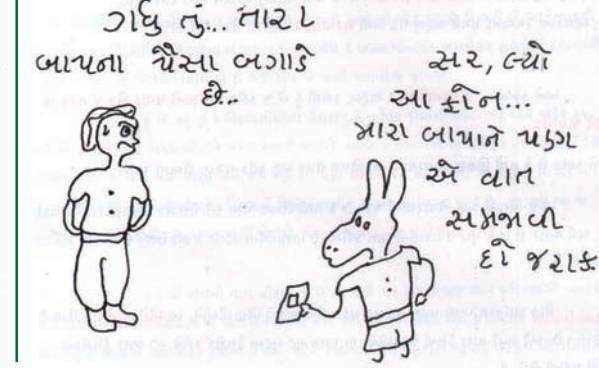 ગધેડું તું... તારા
બાપના પૈસા બગાડે
છે..
સર, લ્યો
આ ફોન...
મારા બાપાને પણ
એ વાત
સમજાવી
દો જરાક